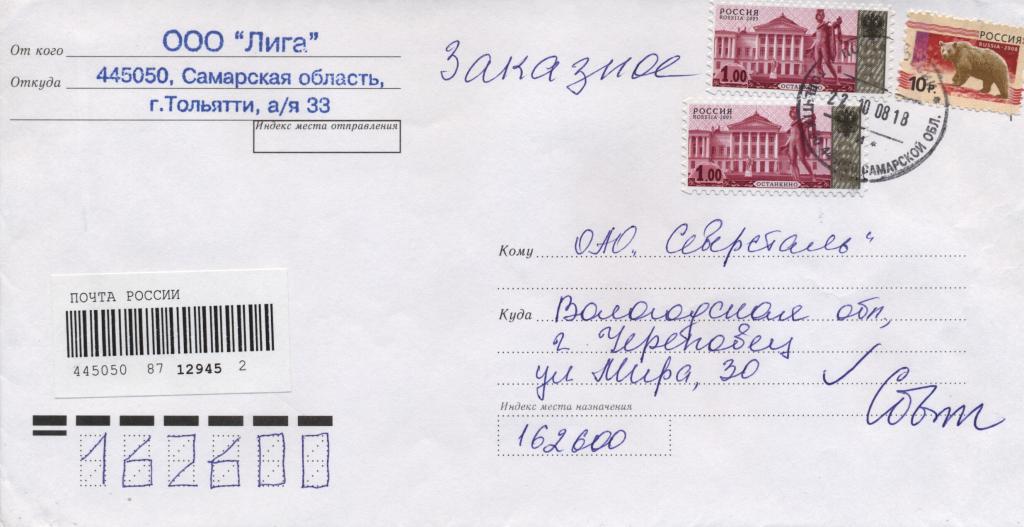 От кого ООО "Лига"
Откуда 445050, Самарская область,
г.Тольятти, а/я 33
Индекс места отправления
Заказное
РОССИЯ
ROSSIJA 2003
1.00
ОСТАНКИНО
РОССИЯ
ROSSIJA 2003
1.00
ОСТАНКИНО
РОССИЯ
RUSSIA·2008
10 р.
22 10 08 18
САМАРСКОЙ ОБЛ.
Кому ОАО „Северсталь"
Куда Вологодская обл,
г Череповец
ул Мира, 30
Индекс места назначения
162600
ПОЧТА РОССИИ
445050 87 12945 2
162600